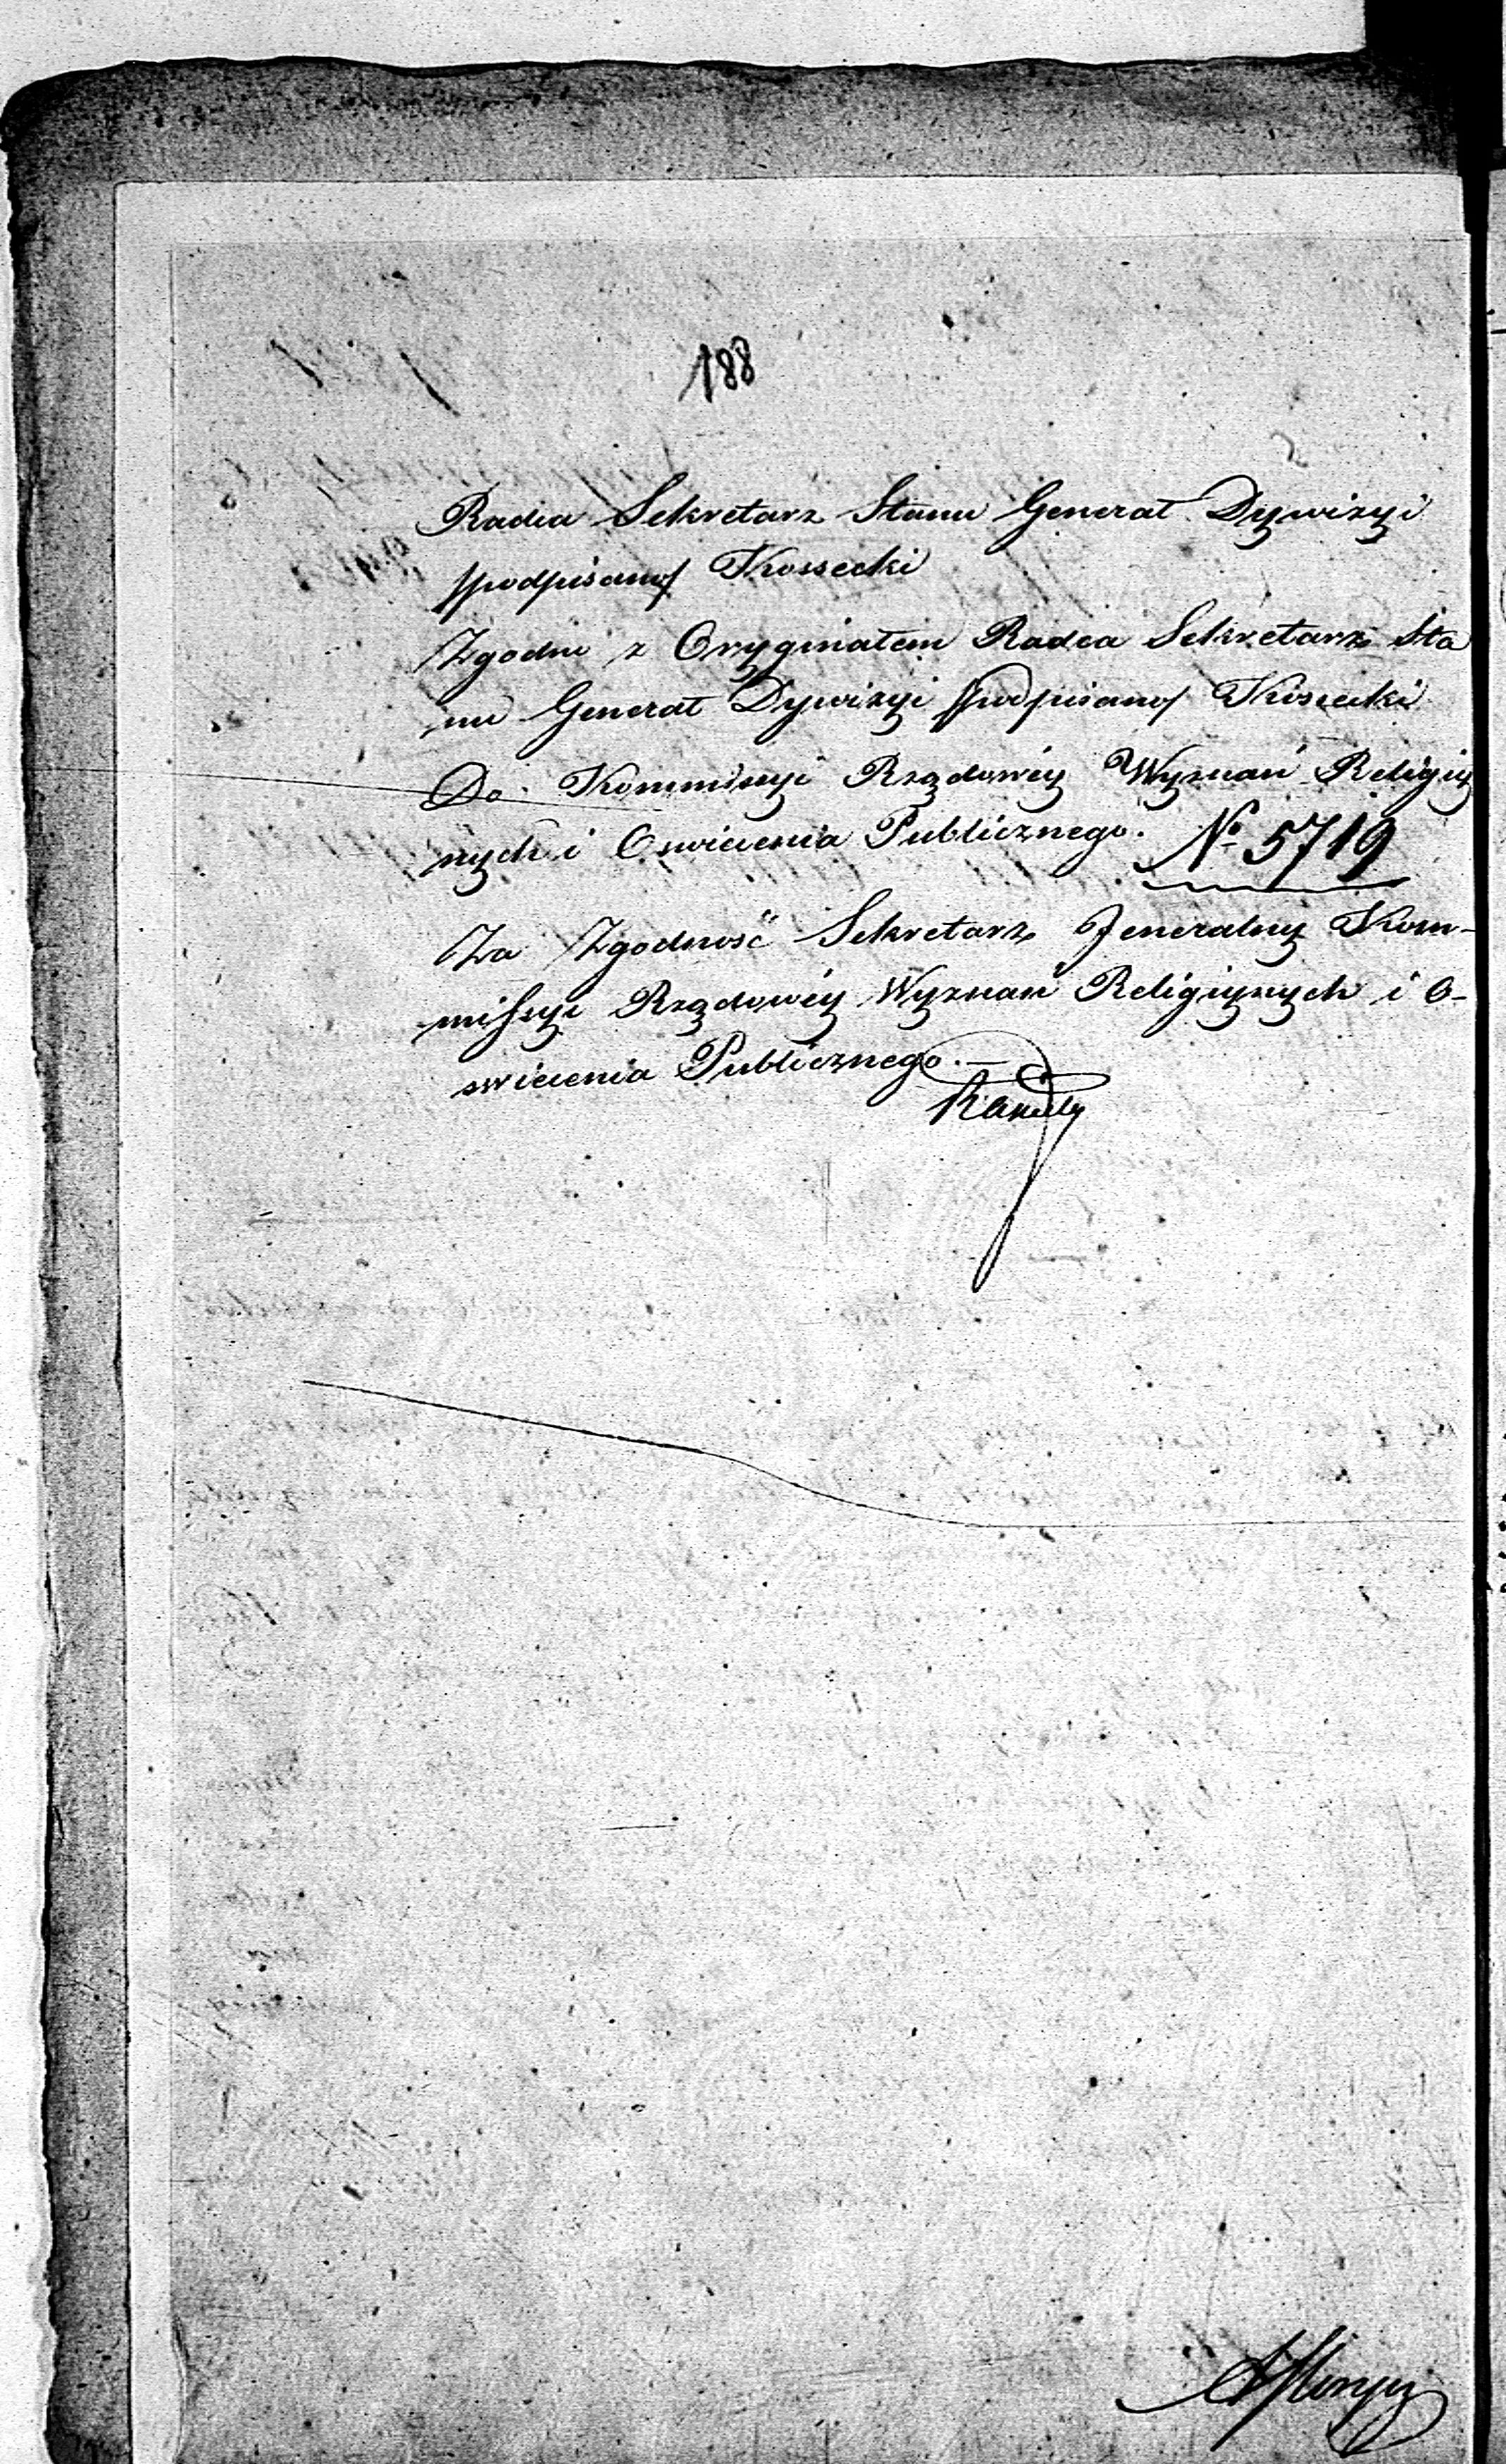 188
Radca Sekretarz Stanu Generał Dywizyi
/podpisano/ Kossecki
Zgodno z Oryginałem Radca Sekretarz Sta
nu Generał Dywizyi /podpisano/ Kossecki
Do Kommissyi Rządowéy Wyznań Religiy
nych i Oswiecenia Publicznego. № 5719
Za Zgodność Sekretarz Jeneralny Kom-
missyi Rządowéy Wyznań Religiynych i O-
swiecenia Publicznego. —